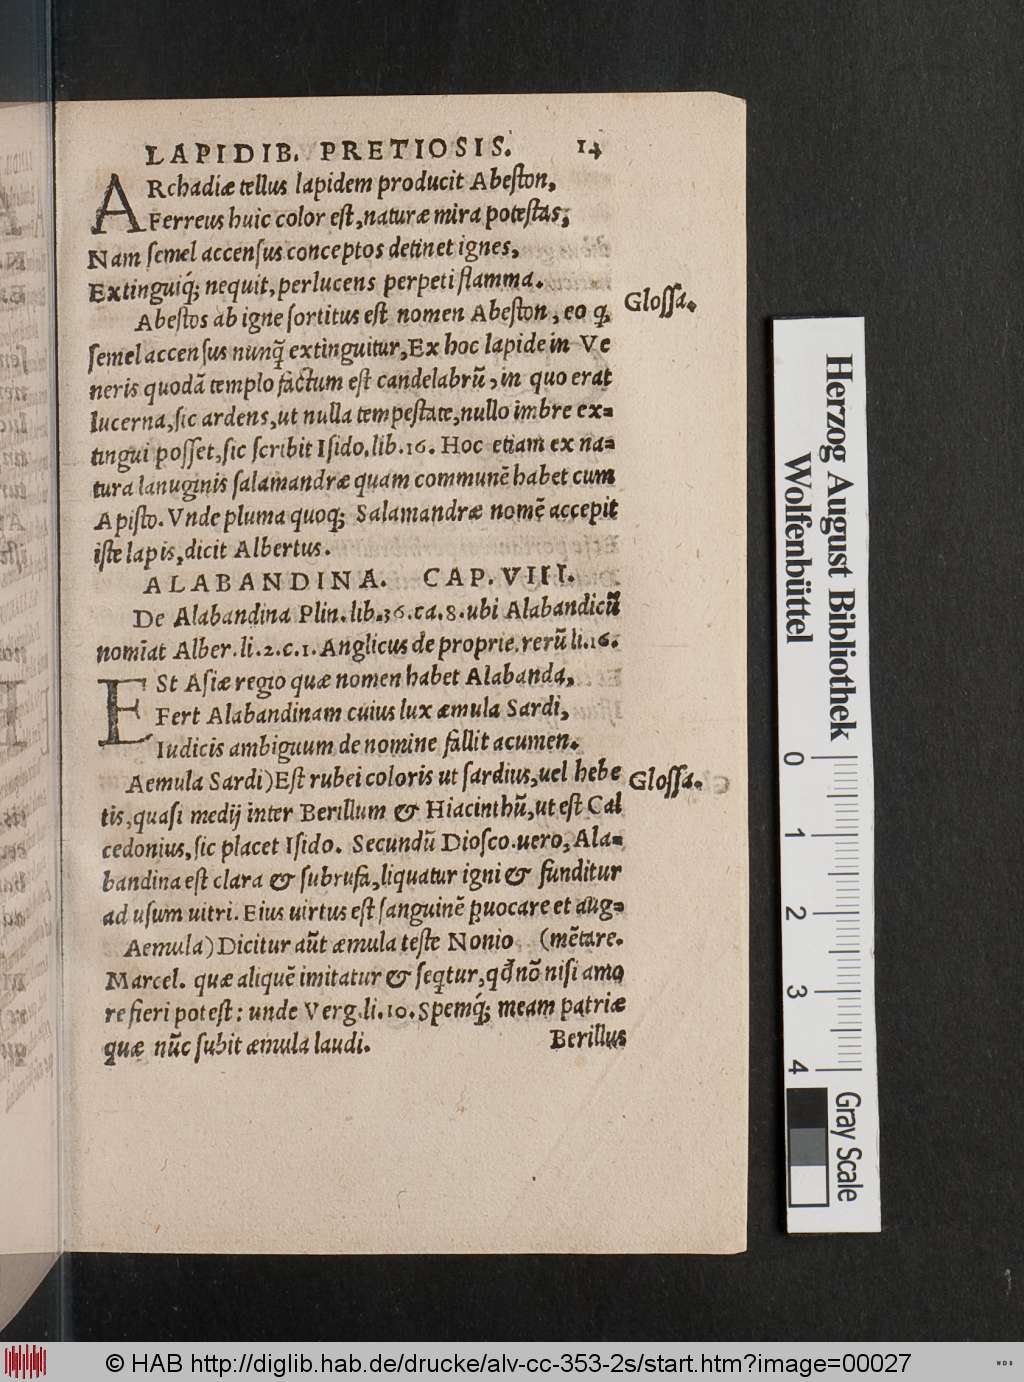 LAPIDIB. PRETIOSIS. 14
ARchadiæ tellus lapidem producit Abeſton,
Ferreus huic color eſt, naturæ mira poteſtas;
Nam ſemel accenſus conceptos detinet ignes,
Extinguiq́; nequit, perlucens perpeti flamma.
Abeſtos ab igne ſortitus eſt nomen Abeſton, eo q, Gloſſa.
ſemel accenſus nunq̃ extinguitur, Ex hoc lapide in Ve
neris quodã templo factum eſt candelabrũ, in quo erat
lucerna, ſic ardens, ut nulla tempeſtate, nullo imbre ex=
tingui poſſet, ſic ſcribit Iſido, lib. 16. Hoc etiam ex na=
tura lanuginis ſalamandræ quam communẽ habet cum
Apiſto. Vnde pluma quoq; Salamandræ nomẽ accepit
iſte lapis, dicit Albertus.
ALABANDINA. CAP. VIII.
De Alabandina Plin. lib. 36. ca. 8. ubi Alabandicũ
nomĩat Alber. li. 2. c. 1. Anglicus de proprie. rerũ li. 16.
ESt Aſiæ regio quæ nomen habet Alabanda,
Fert Alabandinam cuius lux æmula Sardi,
Iudicis ambiguum de nomine fallit acumen.
Aemula Sardi) Eſt rubei coloris ut ſardius, uel hebe Gloſſa.
tis, quaſi medij inter Berillum & Hiacinthũ, ut eſt Cal
cedonius, ſic placet Iſido. Secundũ Dioſco. uero, Ala=
bandina eſt clara & ſubrufa, liquatur igni & funditur
ad uſum uitri. Eius uirtus eſt ſanguinẽ ꝓuocare et aug=
Aemula) Dicitur aũt æmula teſte Nonio (mẽtare.
Marcel. quæ aliquẽ imitatur & ſeqtur, qđ nõ niſi amo
re fieri poteſt: unde Verg. li. 10. Spemq́; meam patriæ
quæ nũc ſubit æmula laudi. Berillus
Herzog August Bibliothek
Wolfenbüttel
0 1 2 3 4
Gray Scale
© HAB http://diglib.hab.de/drucke/alv-cc-353-2s/start.htm?image=00027